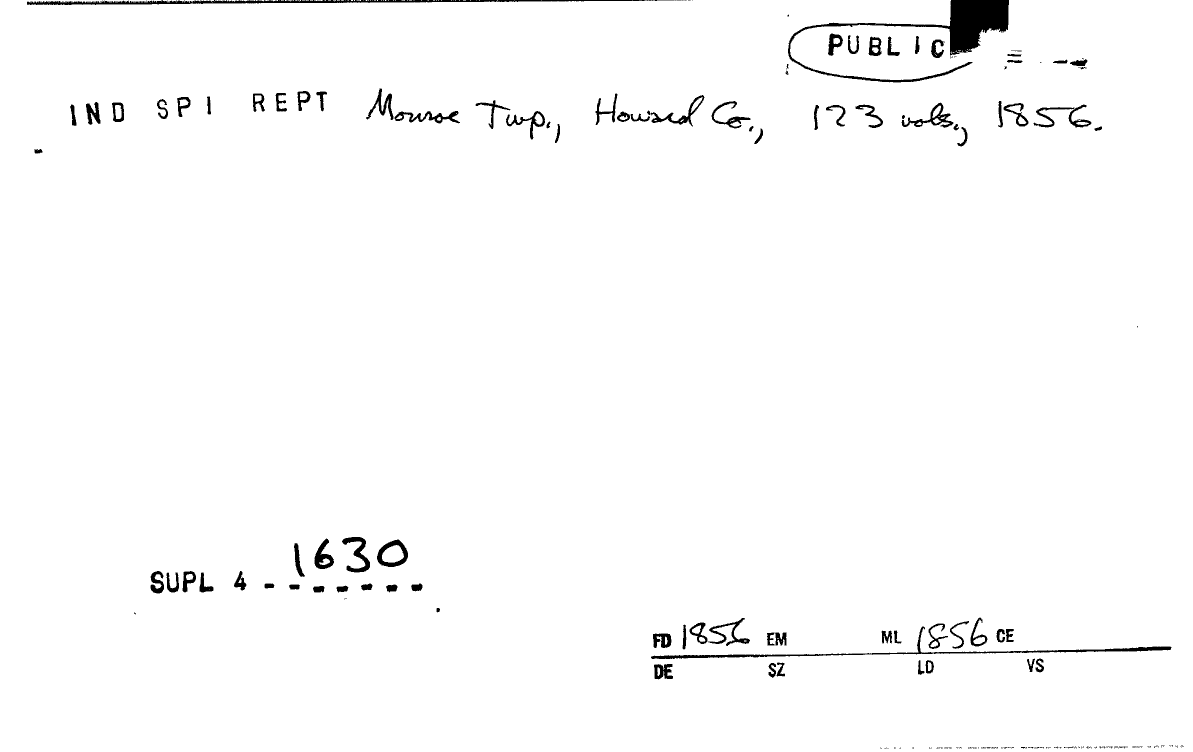 PUBLIC
IND SPI REPT Monroe Twp., Howard Co., 123 vols., 1856.
1630
SUPL 4 - - - - - - -
FD 1856 EM ML 1856 CE
DE SZ LD VS